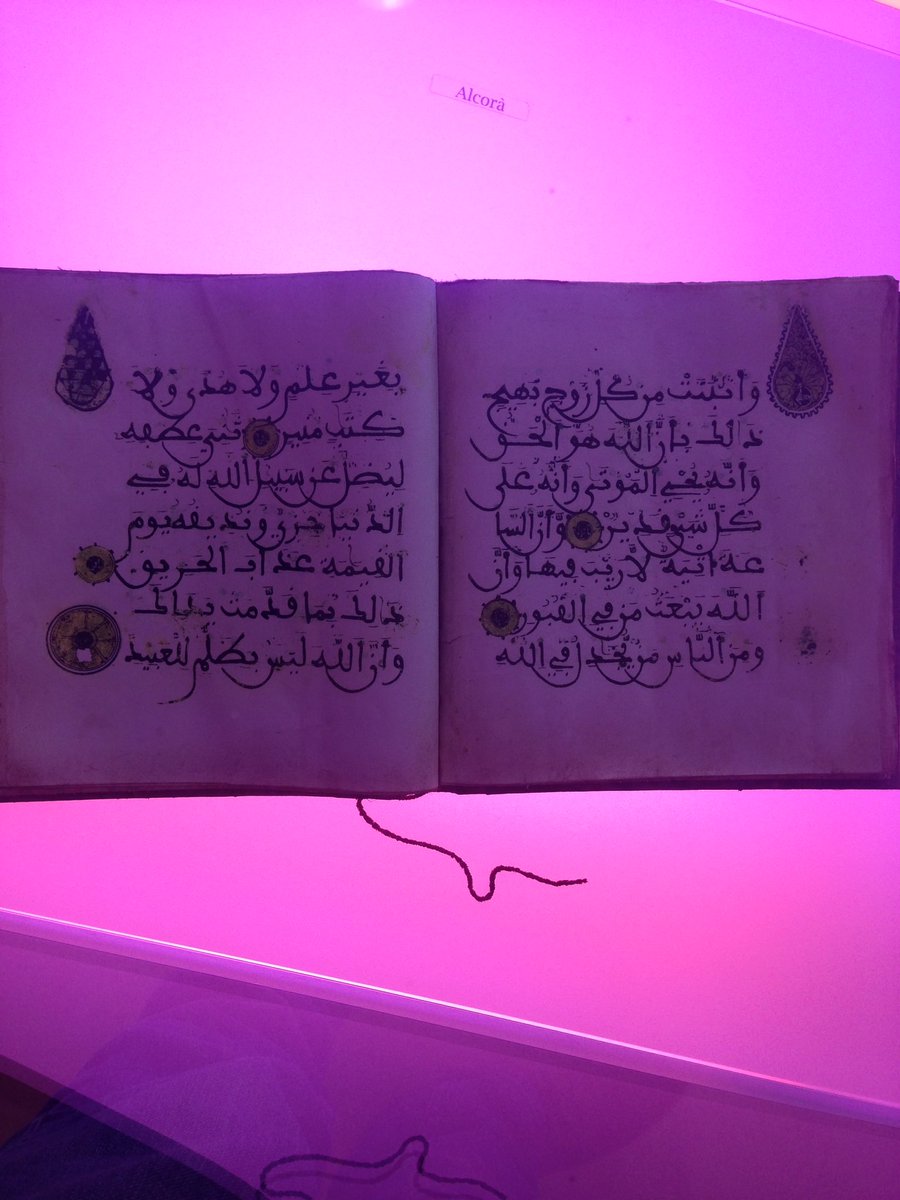 Alcorà
وَأَنۢبَتَتْ مِن كُلِّ زَوْجٍ بَهِيجٍ
ذَالِكَ بِأَنَّ ٱللَّهَ هُوَ ٱلْحَقُّ
وَأَنَّهُ يُحْيِ ٱلْمَوْتَىٰ وَأَنَّهُ عَلَىٰ
كُلِّ شَيْءٍ قَدِيرٌ وَأَنَّ ٱلسَّا
عَةَ ءَاتِيَةٌ لَّا رَيْبَ فِيهَا وَأَنَّ
ٱللَّهَ يَبْعَثُ مَن فِي ٱلْقُبُورِ
وَمِنَ ٱلنَّاسِ مَن يُجَٰدِلُ فِي ٱللَّهِ
بِغَيْرِ عِلْمٍ وَلَا هُدًى وَلَا
كِتَٰبٍ مُّنِيرٍ ثَانِيَ عِطْفِهِ
لِيُضِلَّ عَن سَبِيلِ ٱللَّهِ لَهُ فِي
ٱلدُّنْيَا خِزْيٌ وَنُذِيقُهُ يَوْمَ
ٱلْقِيَٰمَةِ عَذَابَ ٱلْحَرِيقِ
ذَالِكَ بِمَا قَدَّمَتْ يَدَاكَ
وَأَنَّ ٱللَّهَ لَيْسَ بِظَلَّٰمٍ لِّلْعَبِيدِ